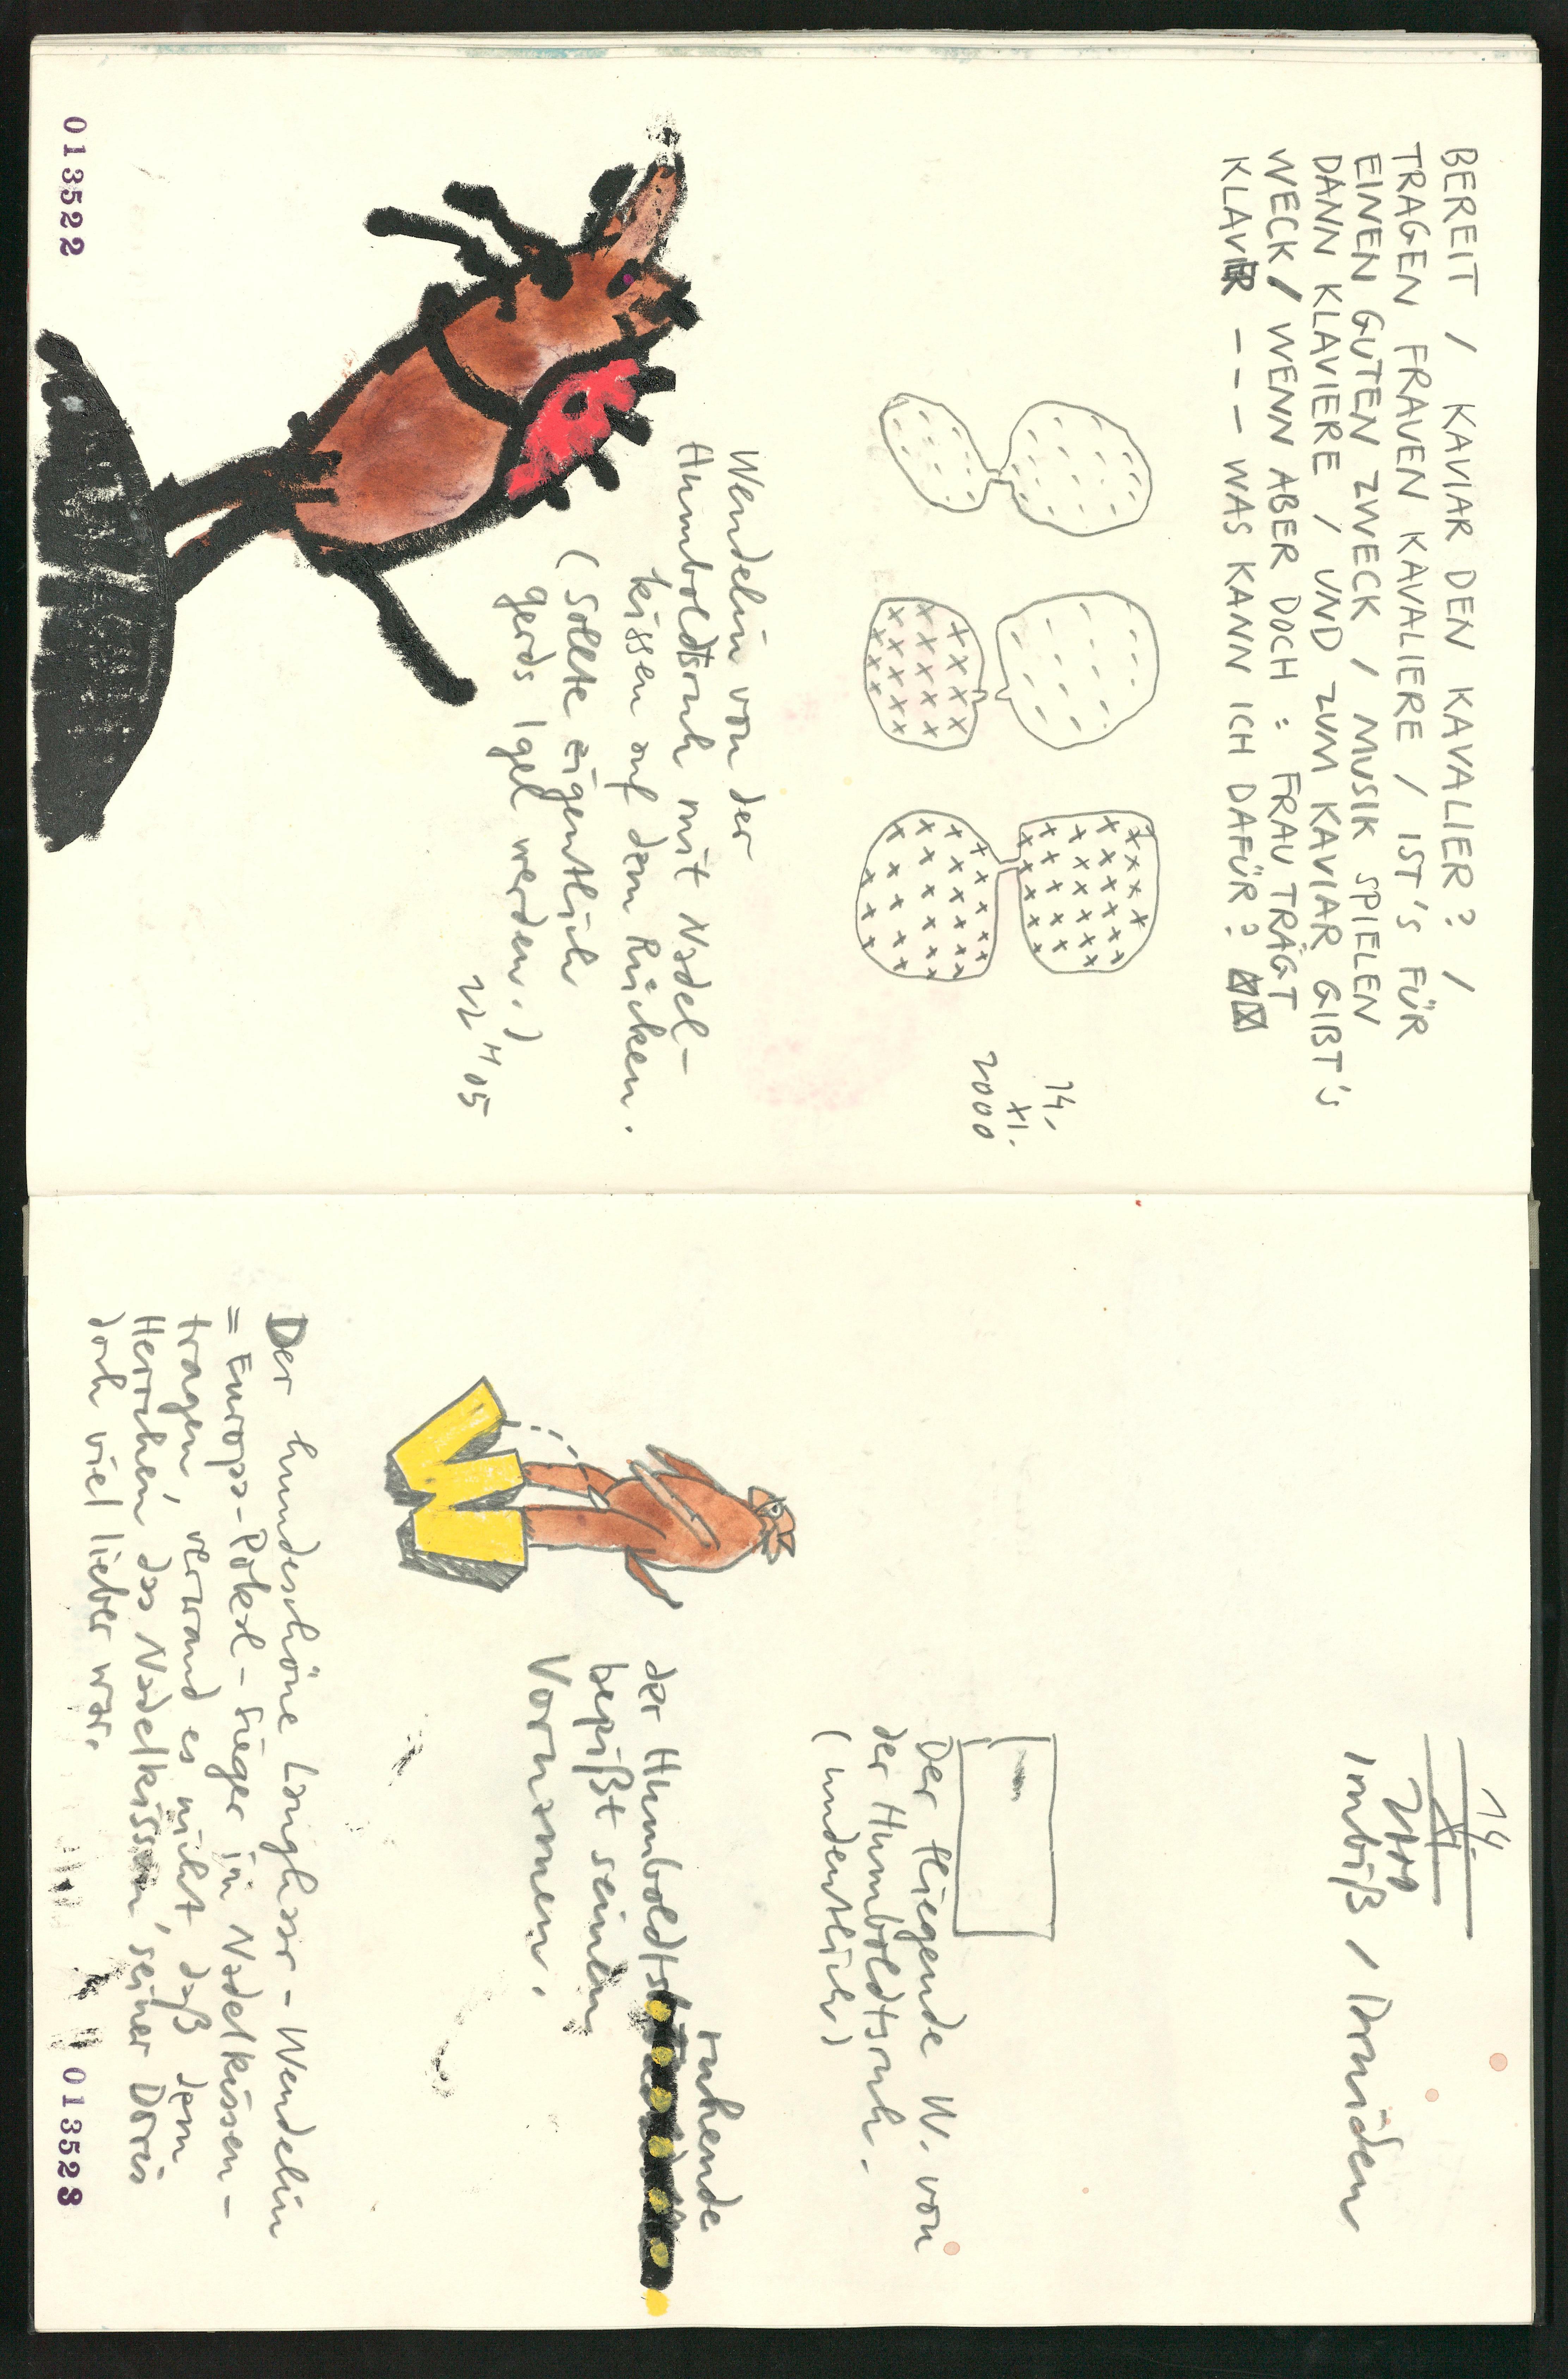 BEREIT / KAVIAR DEN KAVALIER? /
TRAGEN FRAUEN KAVALIERE / IST'S FÜR
EINEN GUTEN ZWECK / MUSIK SPIELEN
DANN KLAVIERE / UND ZUM KAVIAR GIBT'S
WECK / WENN ABER DOCH : FRAU TRÄGT
KLAVIER --- WAS KANN ICH DAFÜR?
14.
XI.
2000
Wendelin von der
Humboldtsruh mit Nadel-
kissen auf dem Rücken.
(Sollte eigentlich
gerds Igel werden.)
22 H 05
013522
14.
XI
2000
Imbiß / Druiden
Der fliegende W. von
der Humboldtsruh.
(undeutlich)
ruhende
der Humboldts
bepißt seinen
Vornamen.
Der hundeschöne Langhaar-Wendelin
= Europa-Pokal-Sieger in Nadelkissen-
tragen, verwand es nicht, daß dem
Herrchen das Nadelkissen seiner Doris
doch viel lieber war.
013523